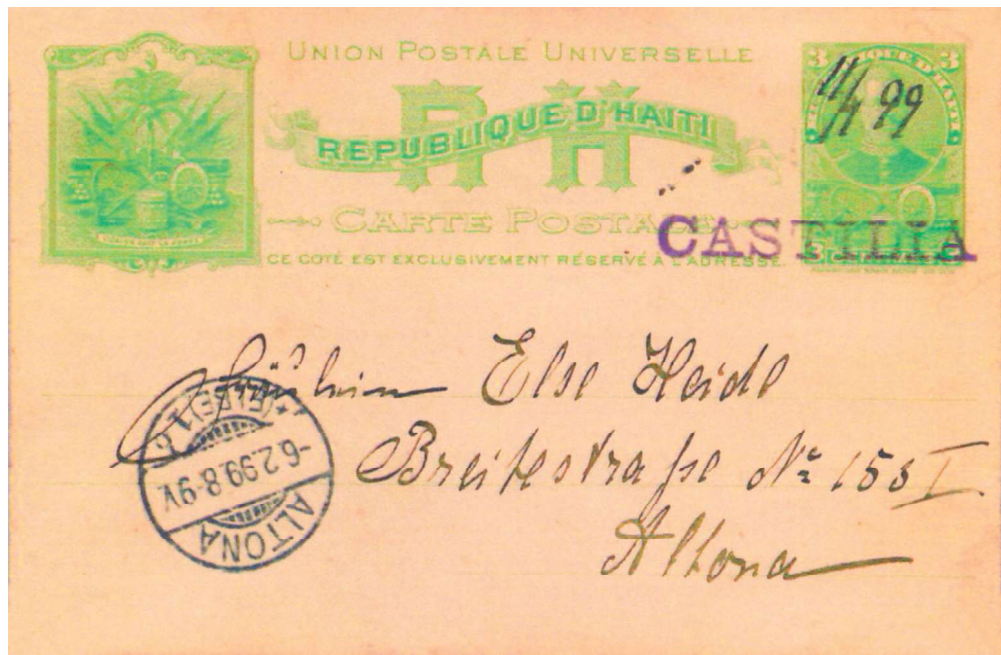 UNION POSTALE UNIVERSELLE
RH
REPUBLIQUE D'HAITI
CARTE POSTALE
CE COTÉ EST EXCLUSIVEMENT RÉSERVÉ A L'ADRESSE.
3 3
11/1 99
CASTILIA
Fräulein Else Heidl
Breitestraße No 155 I
Altona
ALTONA
-6.2.99.8-9V.
*(ELBE)1c